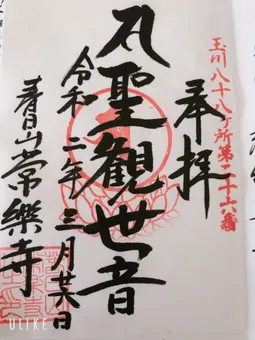 玉川八十八ヶ所第二十六番
奉拝
聖観世音
令和二年三月廿八日
春日山常樂寺
ULIKE